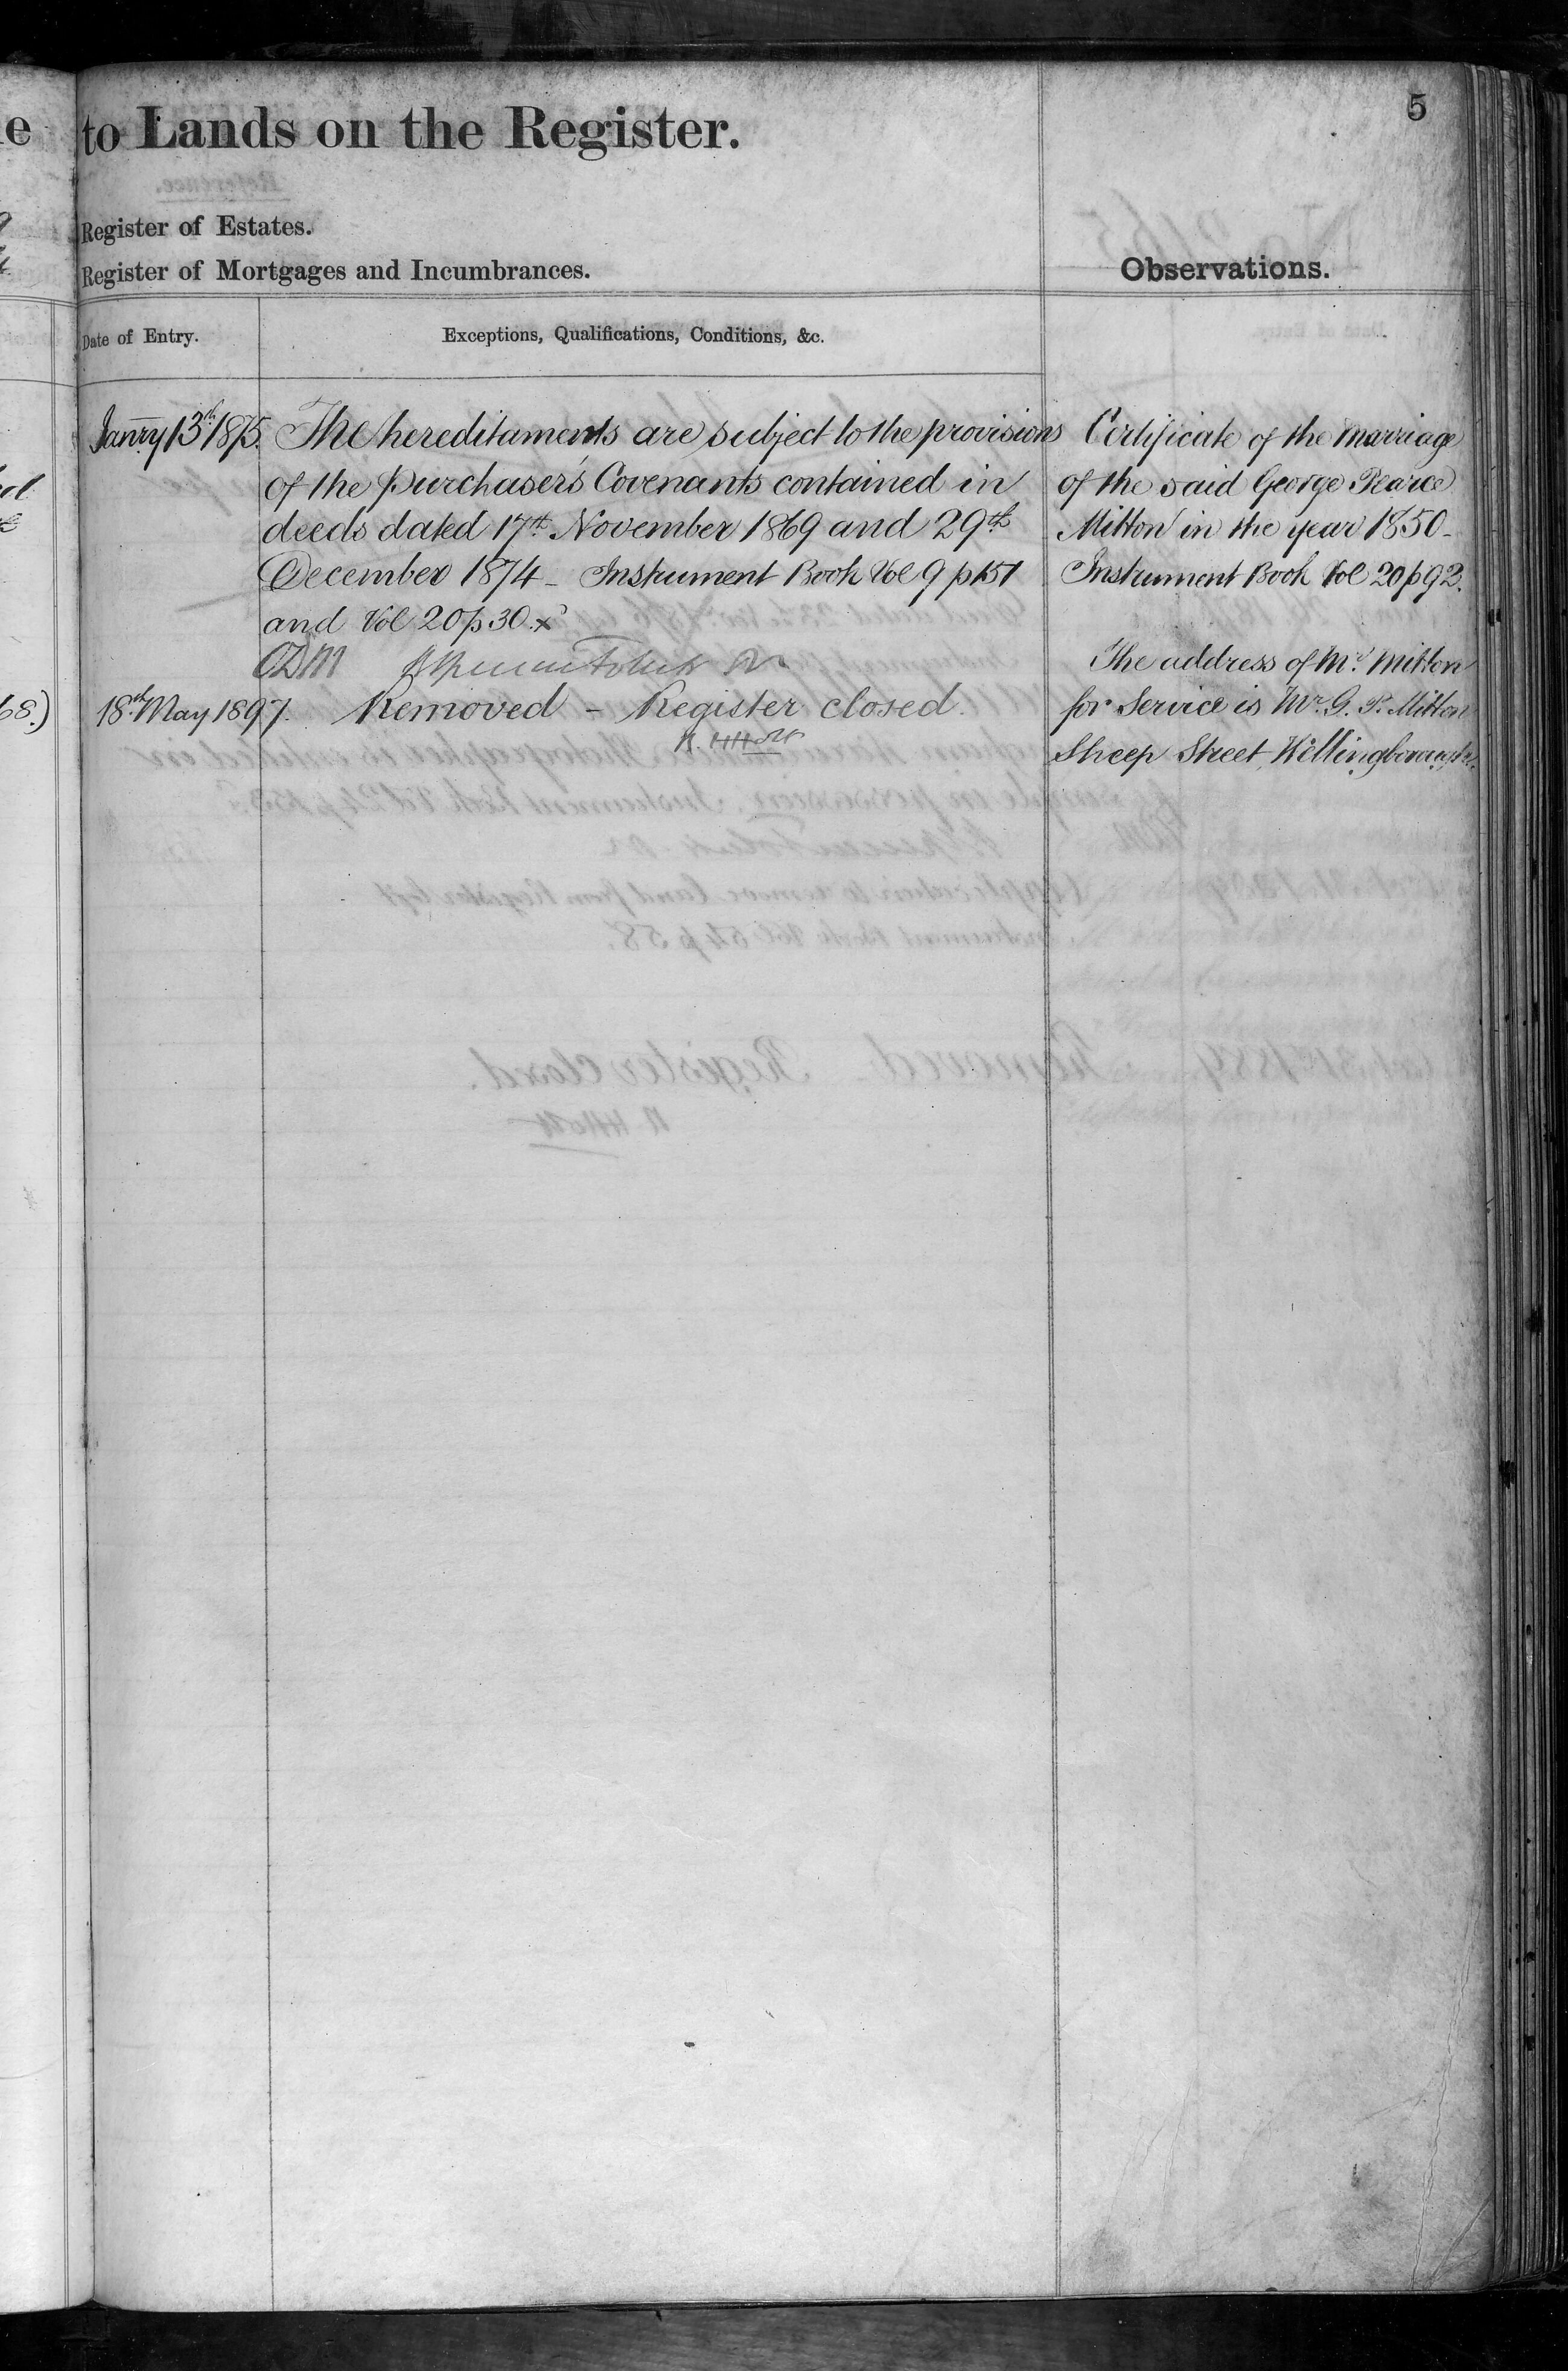 5
to Lands on the Register.
Register of Estates.
Register of Mortgages and Incumbrances.
Observations.
Date of Entry.
Exceptions, Qualifications, Conditions, &c.
Janry 13th 1875. The hereditaments are subject to the provisions
of the Purchaser's Covenants contained in
deeds dated 17th November 1869 and 29th
December 1874 - Instrument Book Vol 9 p 151
and Vol 20 p 30. x
18th May 1897. Removed - Register closed.
Certificate of the Marriage
of the said George Pearce
Mitton in the year 1850 -
Instrument Book Vol 20 p 92.
The address of Mr. Mitton
for Service is Mr. G. P. Mitton
Sheep Street, Wellingborough.